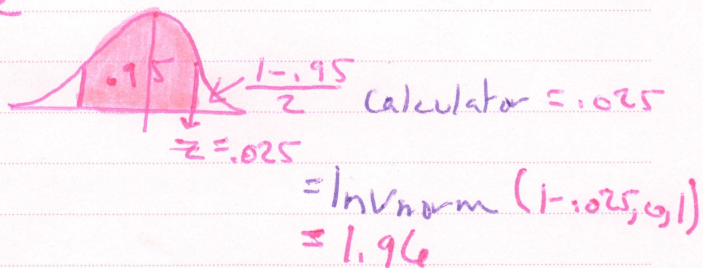 .95
1-.95
2
calculator = .025
z = .025
= Invnorm (1-.025,0,1)
= 1.96